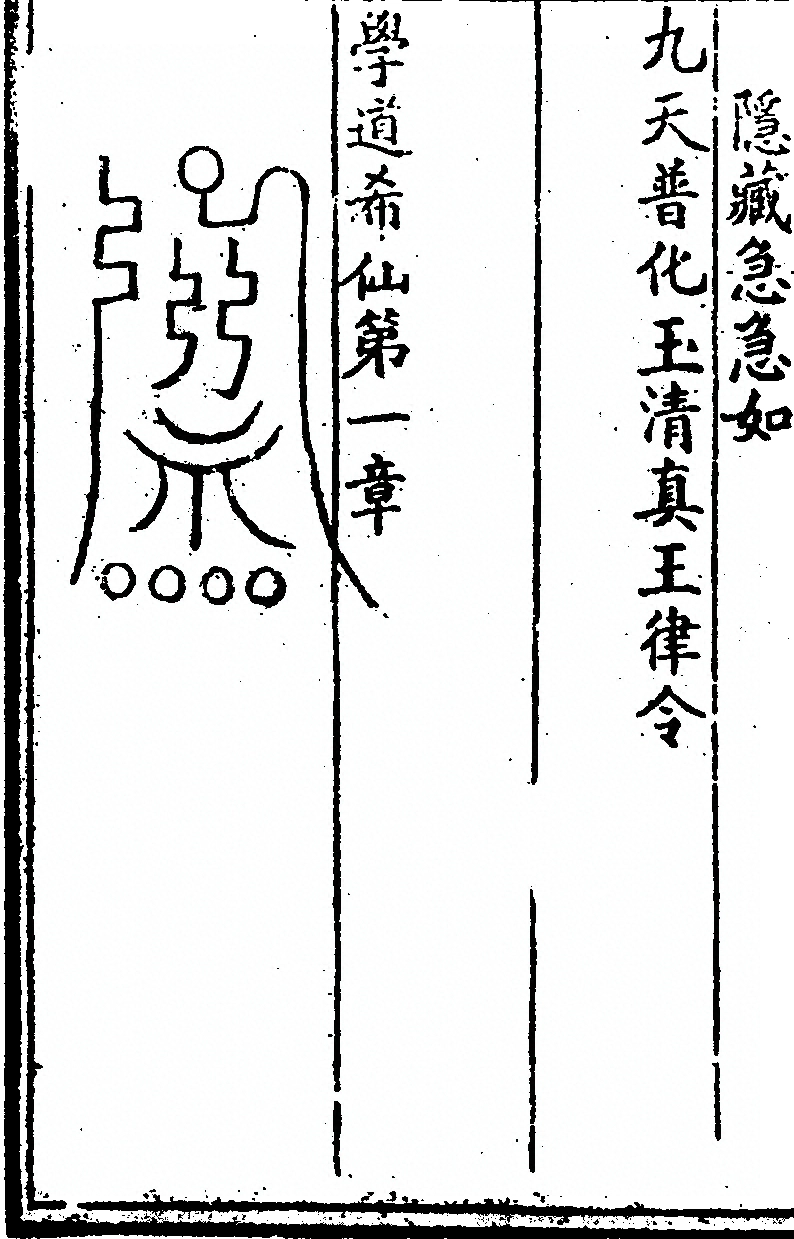 隱藏急急如
九天普化玉清真王律令
學道希仙第一章